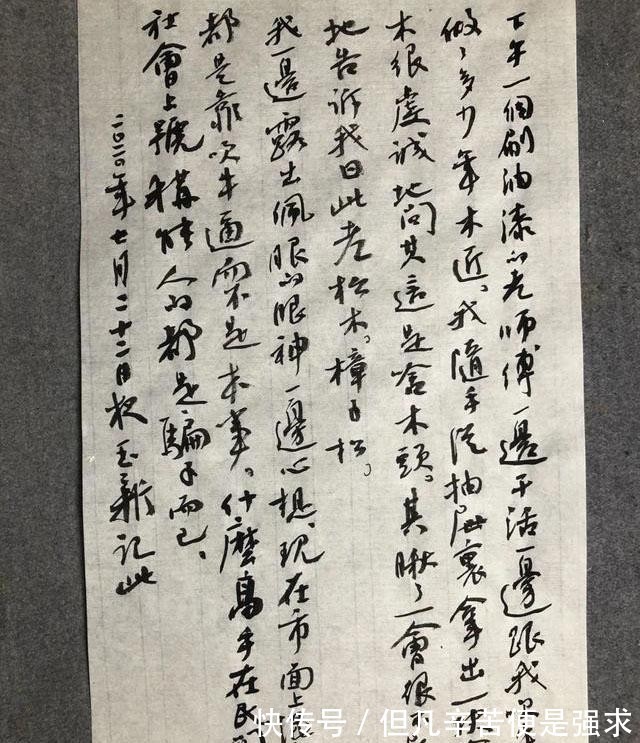 下午一個刷油漆的老师傅一邊干活一邊跟我
做了多少年木近。我隨手從抽屉裏拿出一
木很虔诚地问其這是啥木頭。其瞅了一會很
地告诉我曰此老松木。樟子松。
我一邊露出佩服的眼神一邊心想。现在市面上
都是靠吹牛逼而不是本事。什麼高手在民
社會上號稱能人的都是騙子而已。
二〇二〇年七月二十二日夜玉新记此
快传号 / 但凡辛苦便是强求